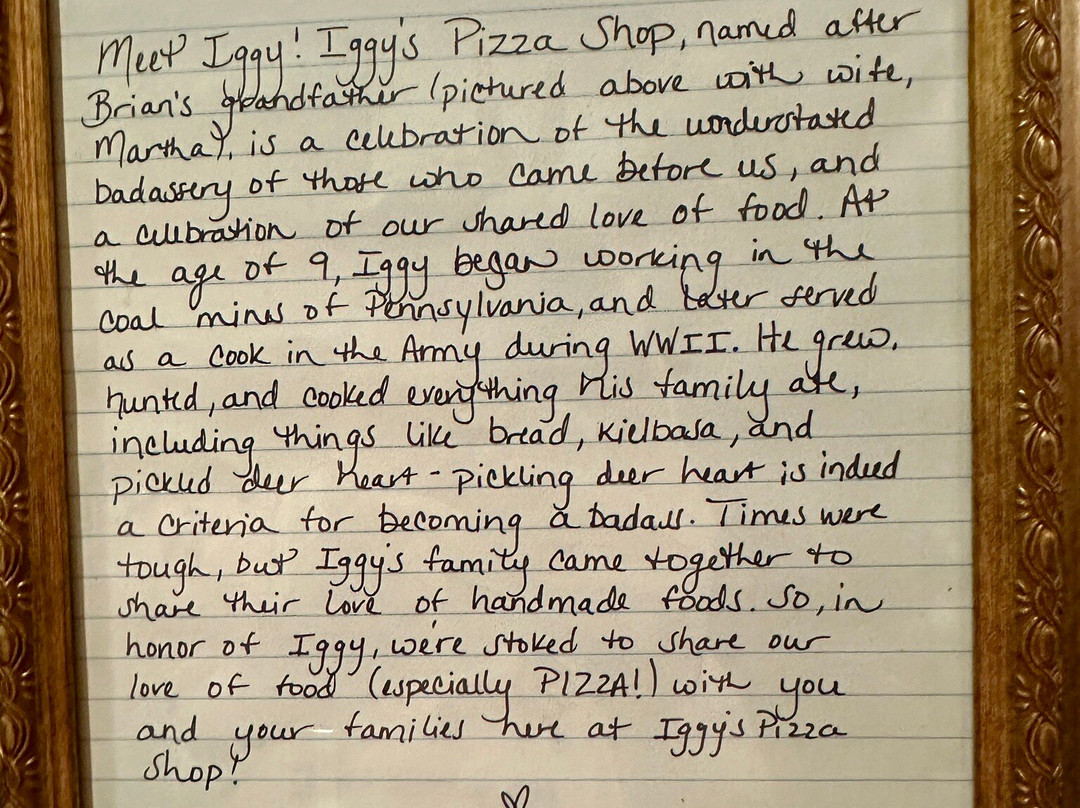 Meet Iggy! Iggy's Pizza Shop, named after
Brian's grandfather (pictured above with wife,
Martha), is a celebration of the understated
badassery of those who came before us, and
a celebration of our shared love of food. At
the age of 9, Iggy began working in the
coal mines of Pennsylvania, and later served
as a cook in the Army during WWII. He grew,
hunted, and cooked everything his family ate,
including things like bread, kielbasa, and
pickled deer heart - pickling deer heart is indeed
a criteria for becoming a badass. Times were
tough, but Iggy's family came together to
share their love of handmade foods. So, in
honor of Iggy, we're stoked to share our
love of food (especially PIZZA!) with you
and your families here at Iggy's Pizza
Shop!